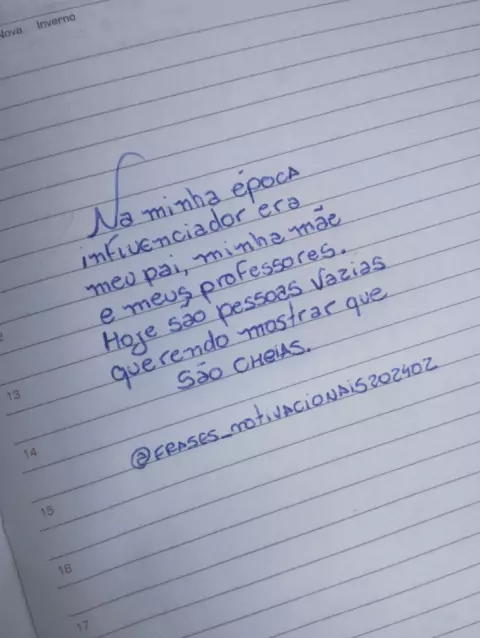 Nova Inverno
Na minha época
influenciador era
meu pai, minha mãe
e meus professores.
Hoje são pessoas vazias
querendo mostrar que
são cheias.
@FRASES_motivacionais202402
13
14
15
16
17